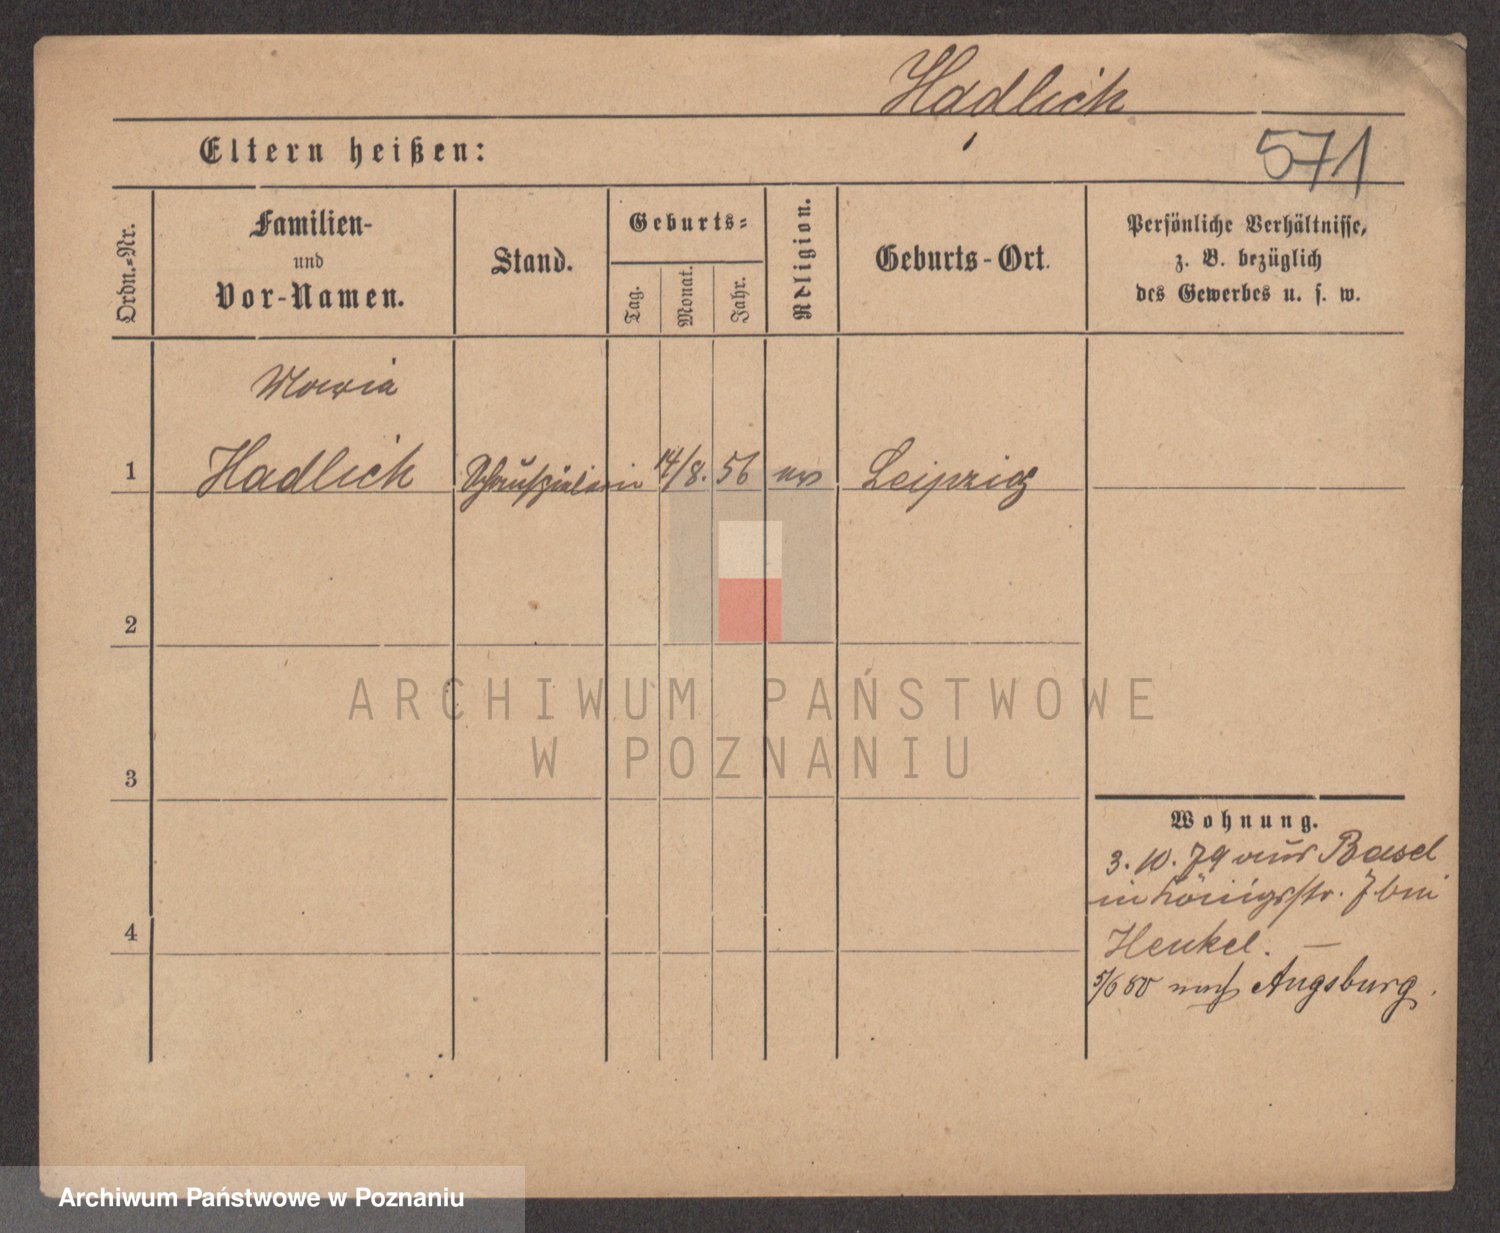 Hadlich
Eltern heißen:
571
Ordn.=Nr.
Familien-
und
Vor-Namen.
Stand.
Geburts=
Tag.
Monat.
Jahr.
Religion.
Geburts-Ort.
Persönliche Verhältnisse,
z. B. bezüglich
des Gewerbes u. s. w.
Maria
1 Hadlich Schauspielerin 14/8. 56 ev Leipzig
2
3
4
Wohnung.
3. 10. 79 aus Basel
in Königsstr. 7 bei
Henkel. —
5/6 80 nach Augsburg.
ARCHIWUM PAŃSTWOWE
W POZNANIU
Archiwum Państwowe w Poznaniu